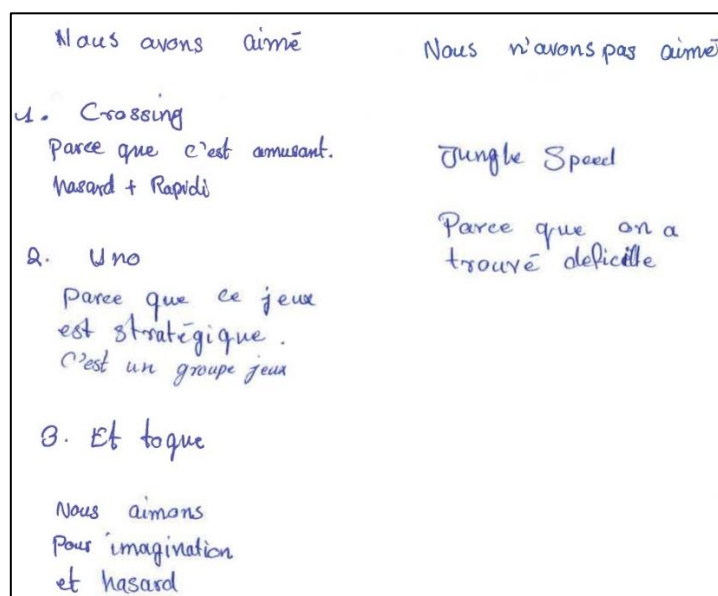 Nous avons aimé
1. Crossing
Parce que c'est amusant.
hasard + Rapidi
2. Uno
Parce que ce jeux
est stratégique.
C'est un groupe jeux
3. Et toque
Nous aimons
Pour imagination
et hasard
Nous n'avons pas aimé
Jungle Speed
Parce que on a
trouvé deficille